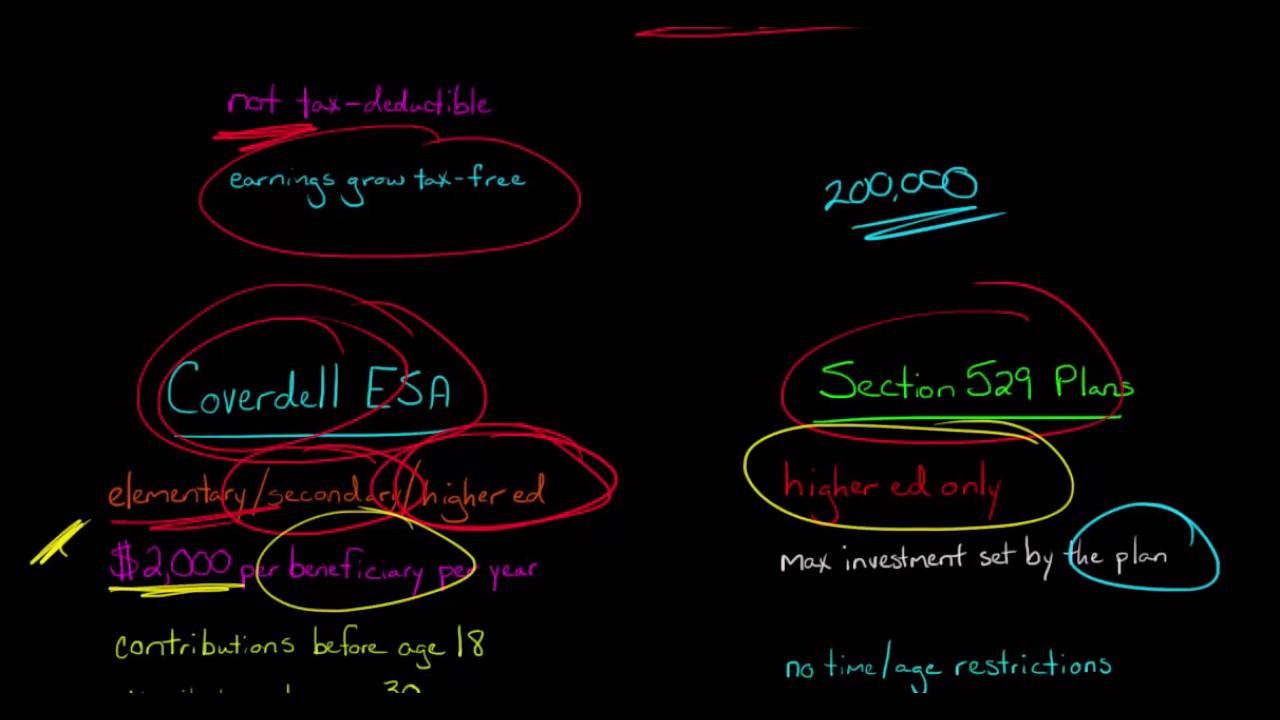 not tax-deductible
earnings grow tax-free
200,000
Coverdell ESA
elementary/secondary/higher ed
$2,000 per beneficiary per year
contributions before age 18
30
Section 529 Plans
higher ed only
max investment set by the plan
no time/age restrictions